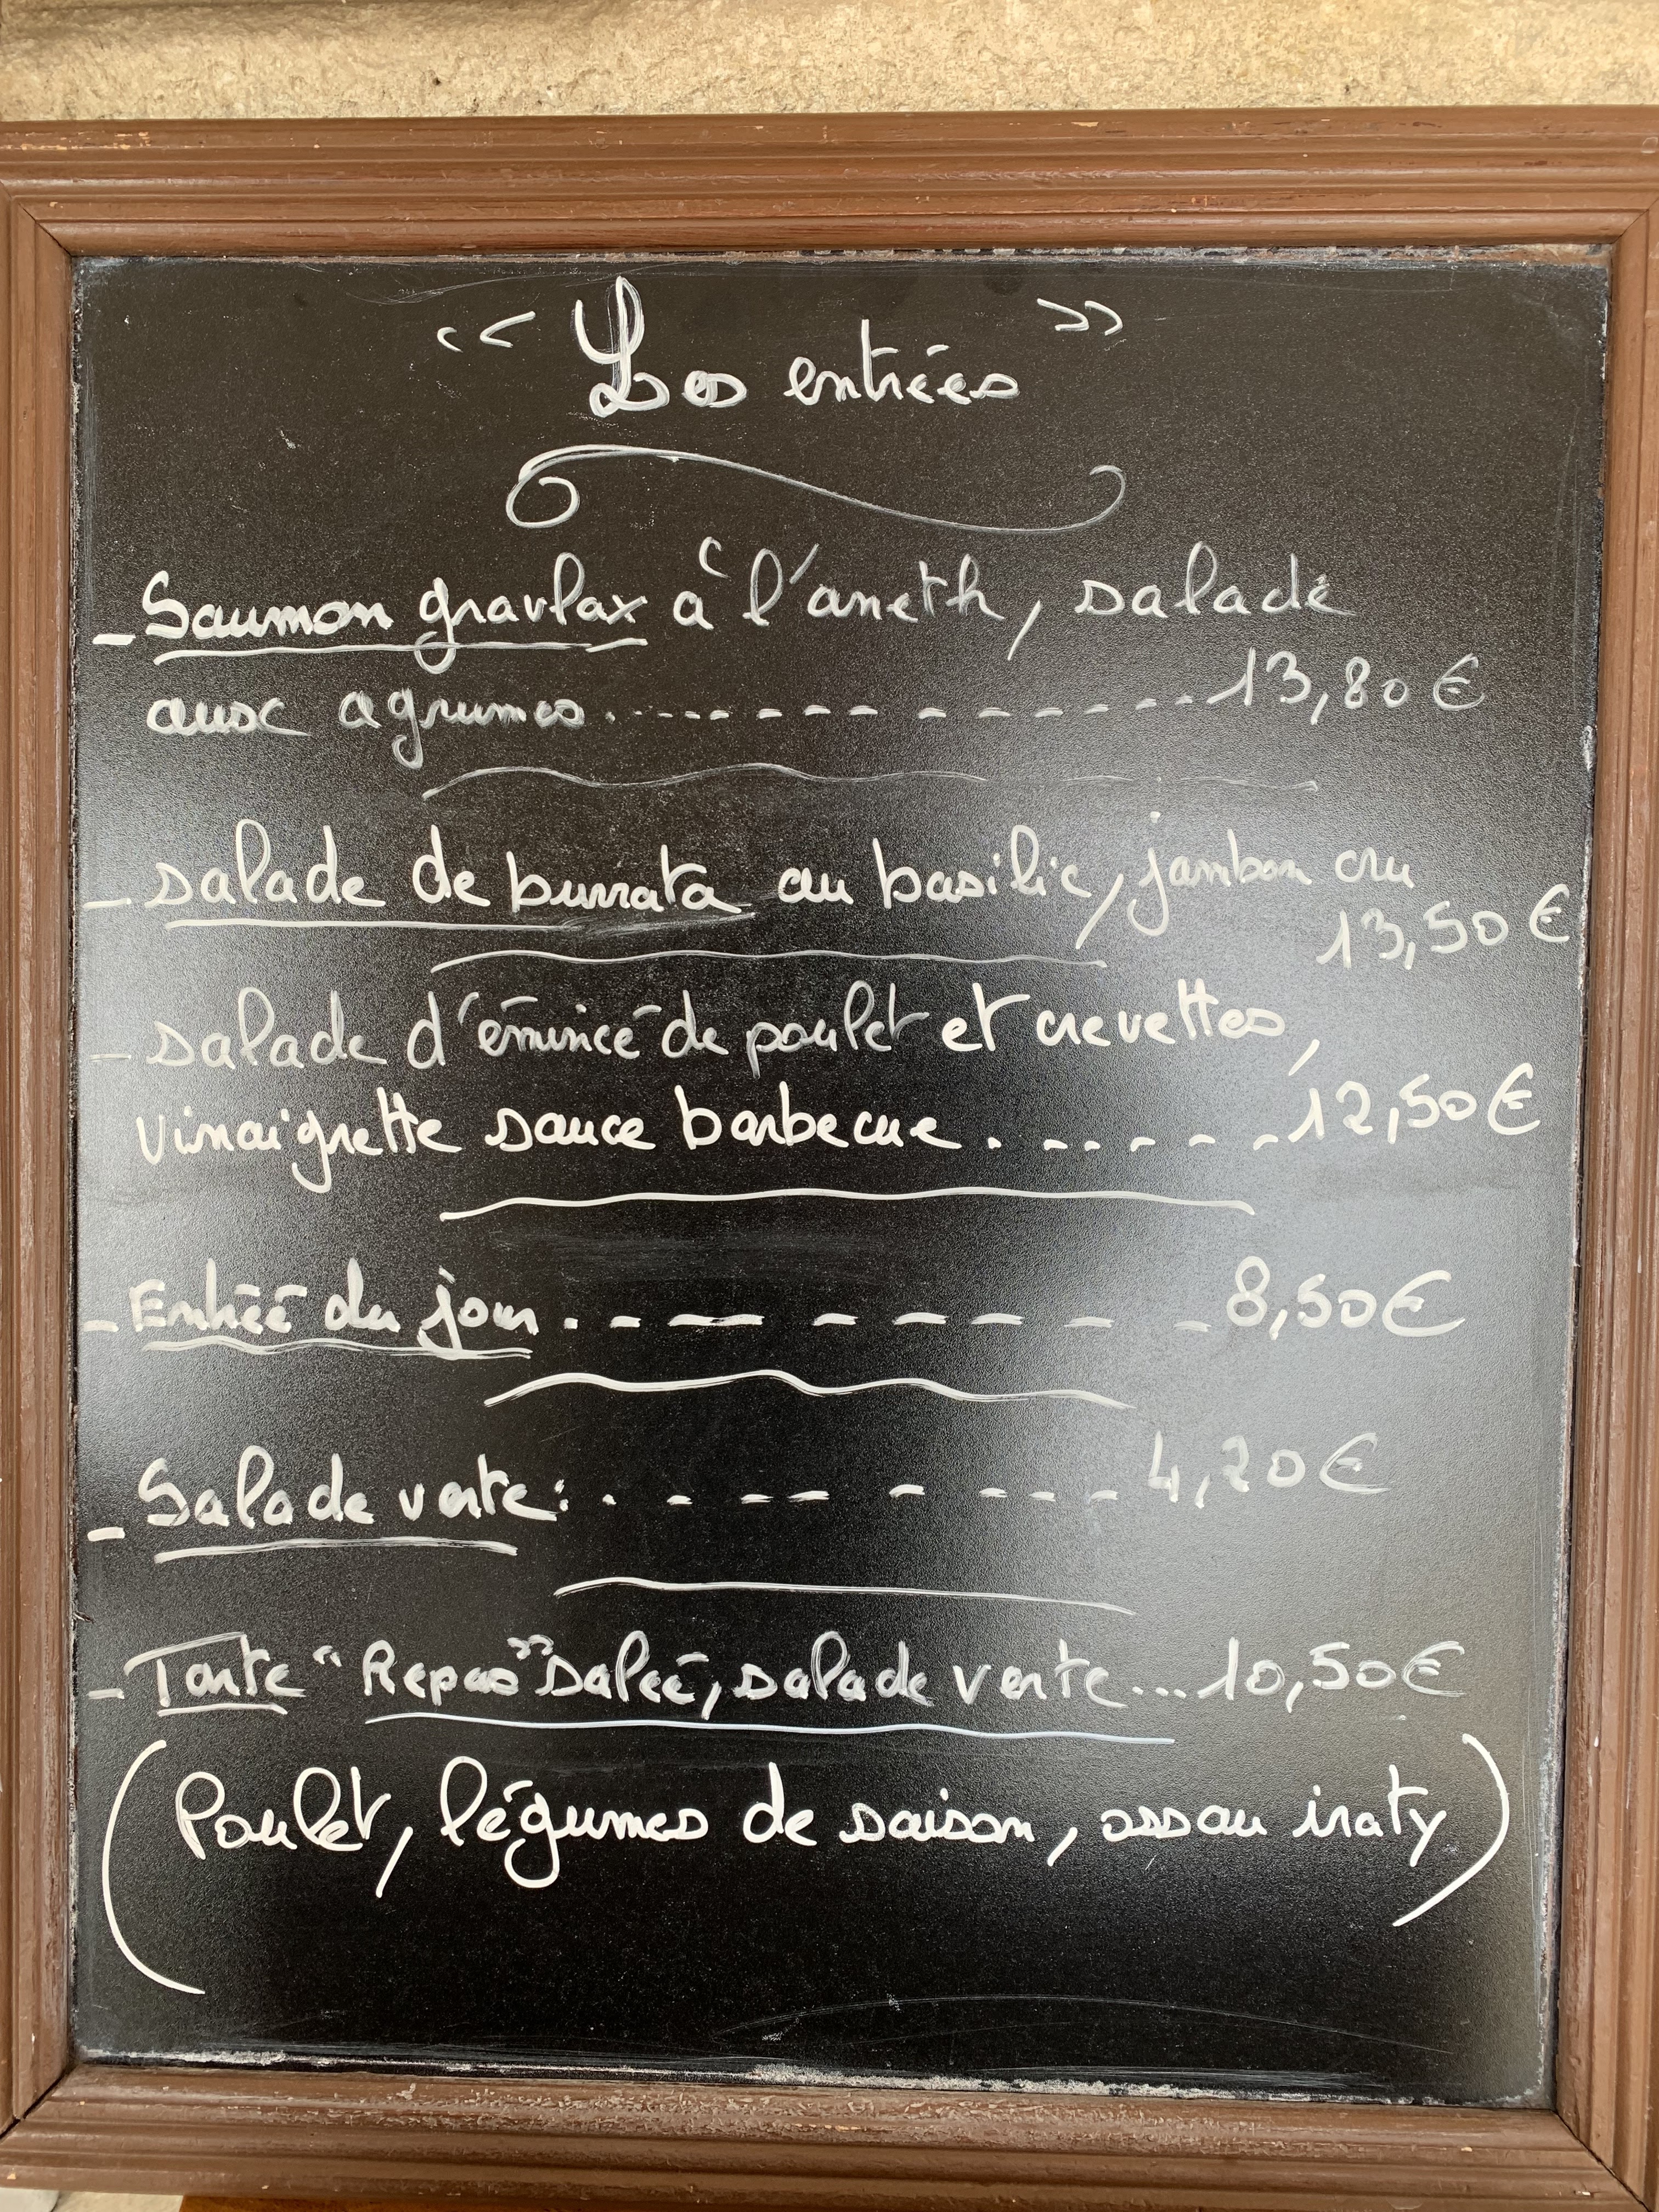 « Les entrées »
- Saumon gravlax à l'aneth, salade
aux agrumes. - - - - - - - - - - - - - - 13,80 €
- salade de burrata au basilic, jambon cru
13,50 €
- salade d'émincé de poulet et crevettes,
vinaigrette sauce barbecue. . . - - - - 12,50 €
- Entrée du jour. . - - - - - - - - 8,50 €
- Salade verte: . - - - - - - - 4,20 €
- Tarte "Repas" salée, salade verte... 10,50 €
(Poulet, légumes de saison, ossau iraty)